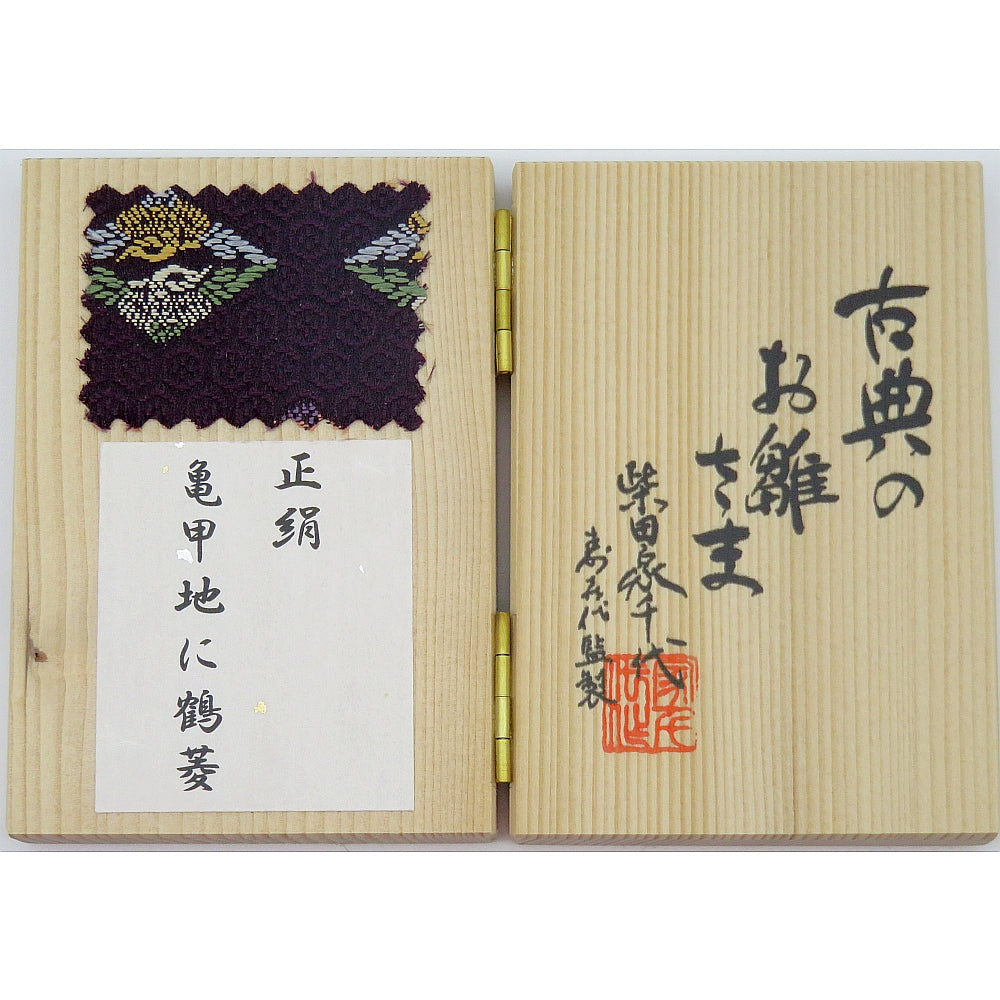 正絹
亀甲地に鶴菱
古典の
お雛
さま
柴田家千代
寿喜代監製